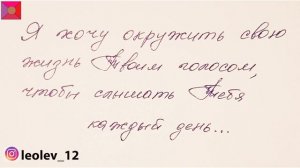 Я хочу окружить свою
жизнь Твоим голосом,
чтобы слышать Тебя
каждый день...
leolev_12